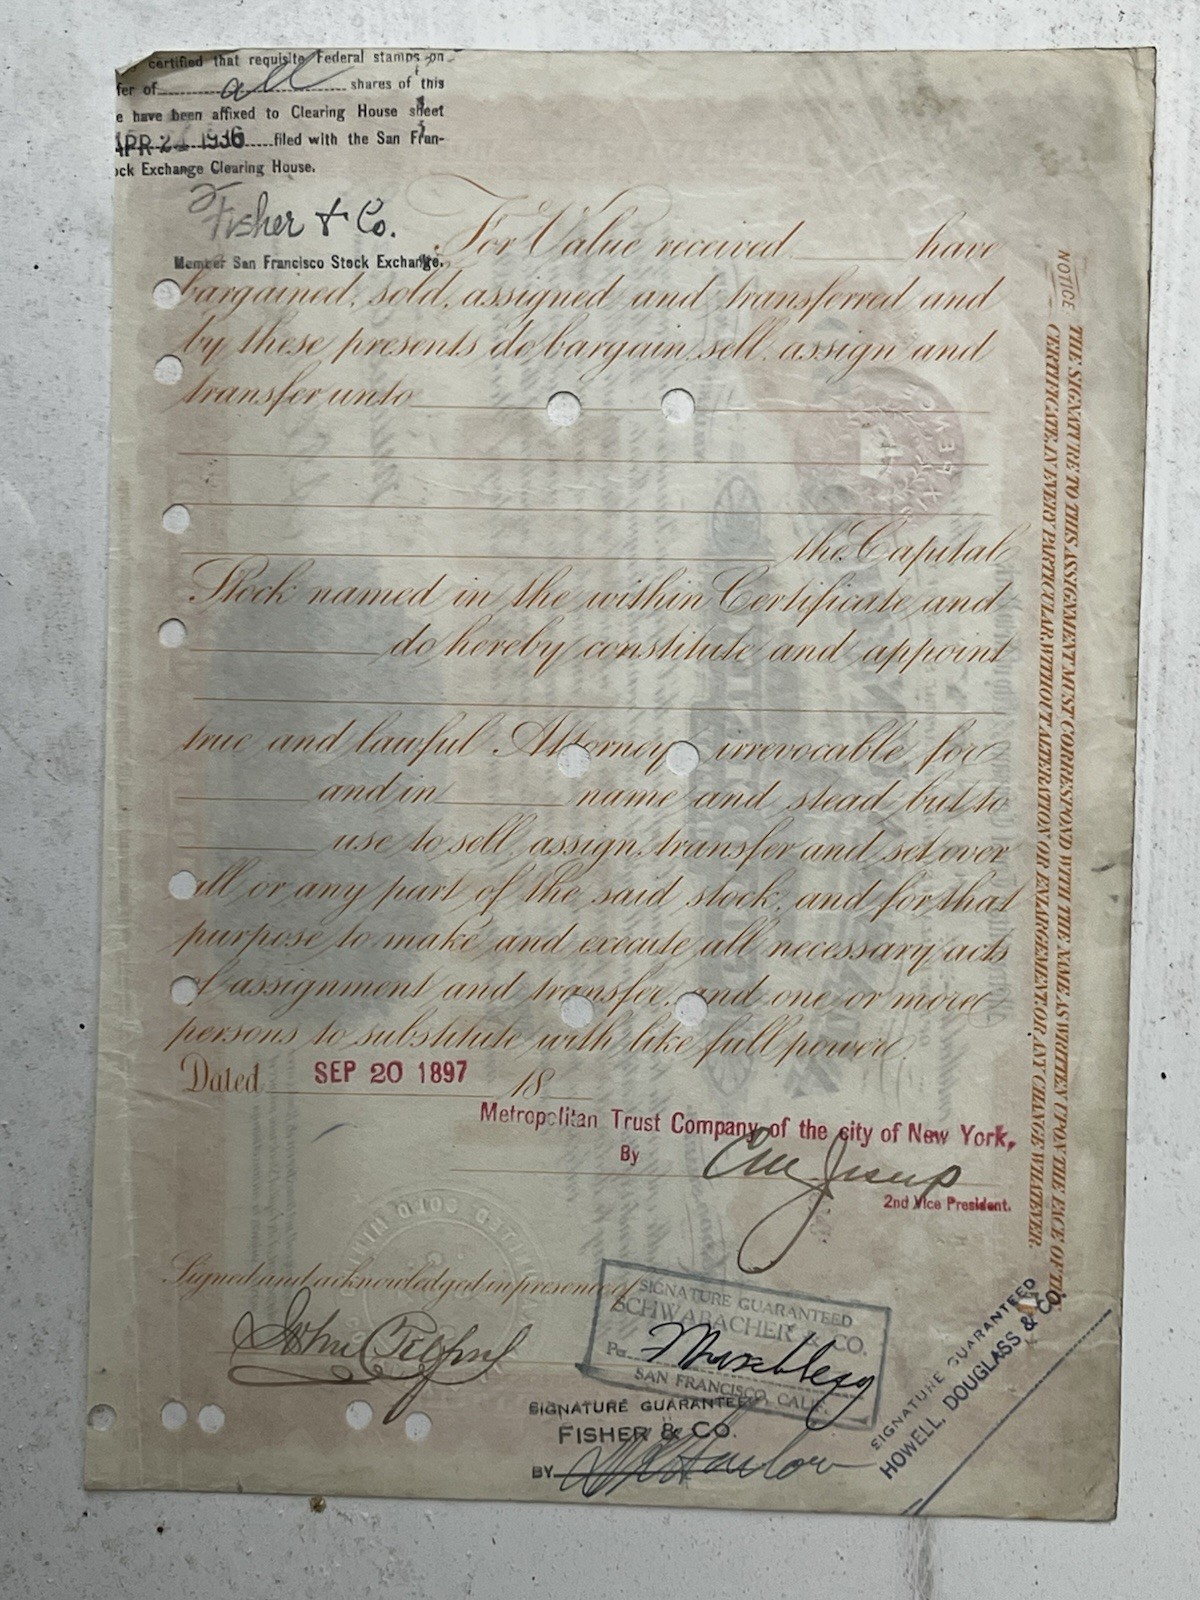 certified that requisite Federal stamps on
fer of all shares of this
e have been affixed to Clearing House sheet
APR 24 1936 filed with the San Fran-
ock Exchange Clearing House.
Fisher & Co.
Member San Francisco Stock Exchange.
For Value received have
bargained, sold, assigned and transferred and
by these presents do bargain, sell, assign and
transfer unto
the Capital
Stock named in the within Certificate and
do hereby constitute and appoint
true and lawful Attorney irrevocable for
and in name and stead but to
use to sell, assign, transfer and set over
all or any part of the said stock, and for that
purpose to make and execute all necessary acts
of assignment and transfer, and one or more
persons to substitute with like full power.
Dated SEP 20 1897 18
Metropolitan Trust Company of the city of New York,
By
2nd Vice President.
Signed and acknowledged in presence of
SIGNATURE GUARANTEED
SCHWABACHER & CO.
Per
SAN FRANCISCO, CALIF.
SIGNATURE GUARANTEED
FISHER & CO.
BY
SIGNATURE GUARANTEED
HOWELL, DOUGLASS & CO.
NOTICE
THE SIGNATURE TO THIS ASSIGNMENT MUST CORRESPOND WITH THE NAME AS WRITTEN UPON THE FACE OF THE
CERTIFICATE, IN EVERY PARTICULAR, WITHOUT ALTERATION OR ENLARGEMENT, OR ANY CHANGE WHATEVER.